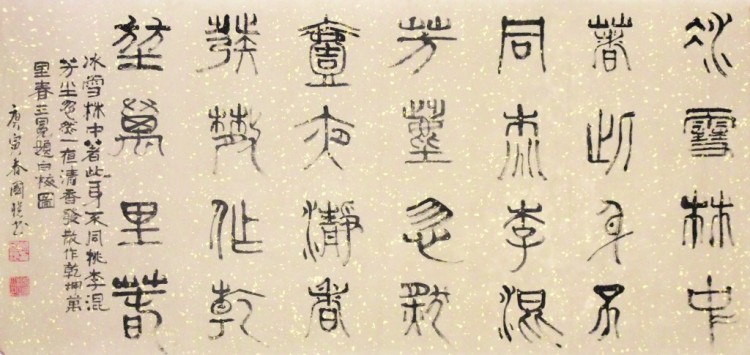 冰雪林中
著此身不
同桃李混
芳塵忽然
壹夜清香
發散作乾
坤萬里春
冰雪林中著此身不同桃李混
芳尘忽然一夜清香發散作乾坤萬
里春王冕題白梅圖
庚寅春國书